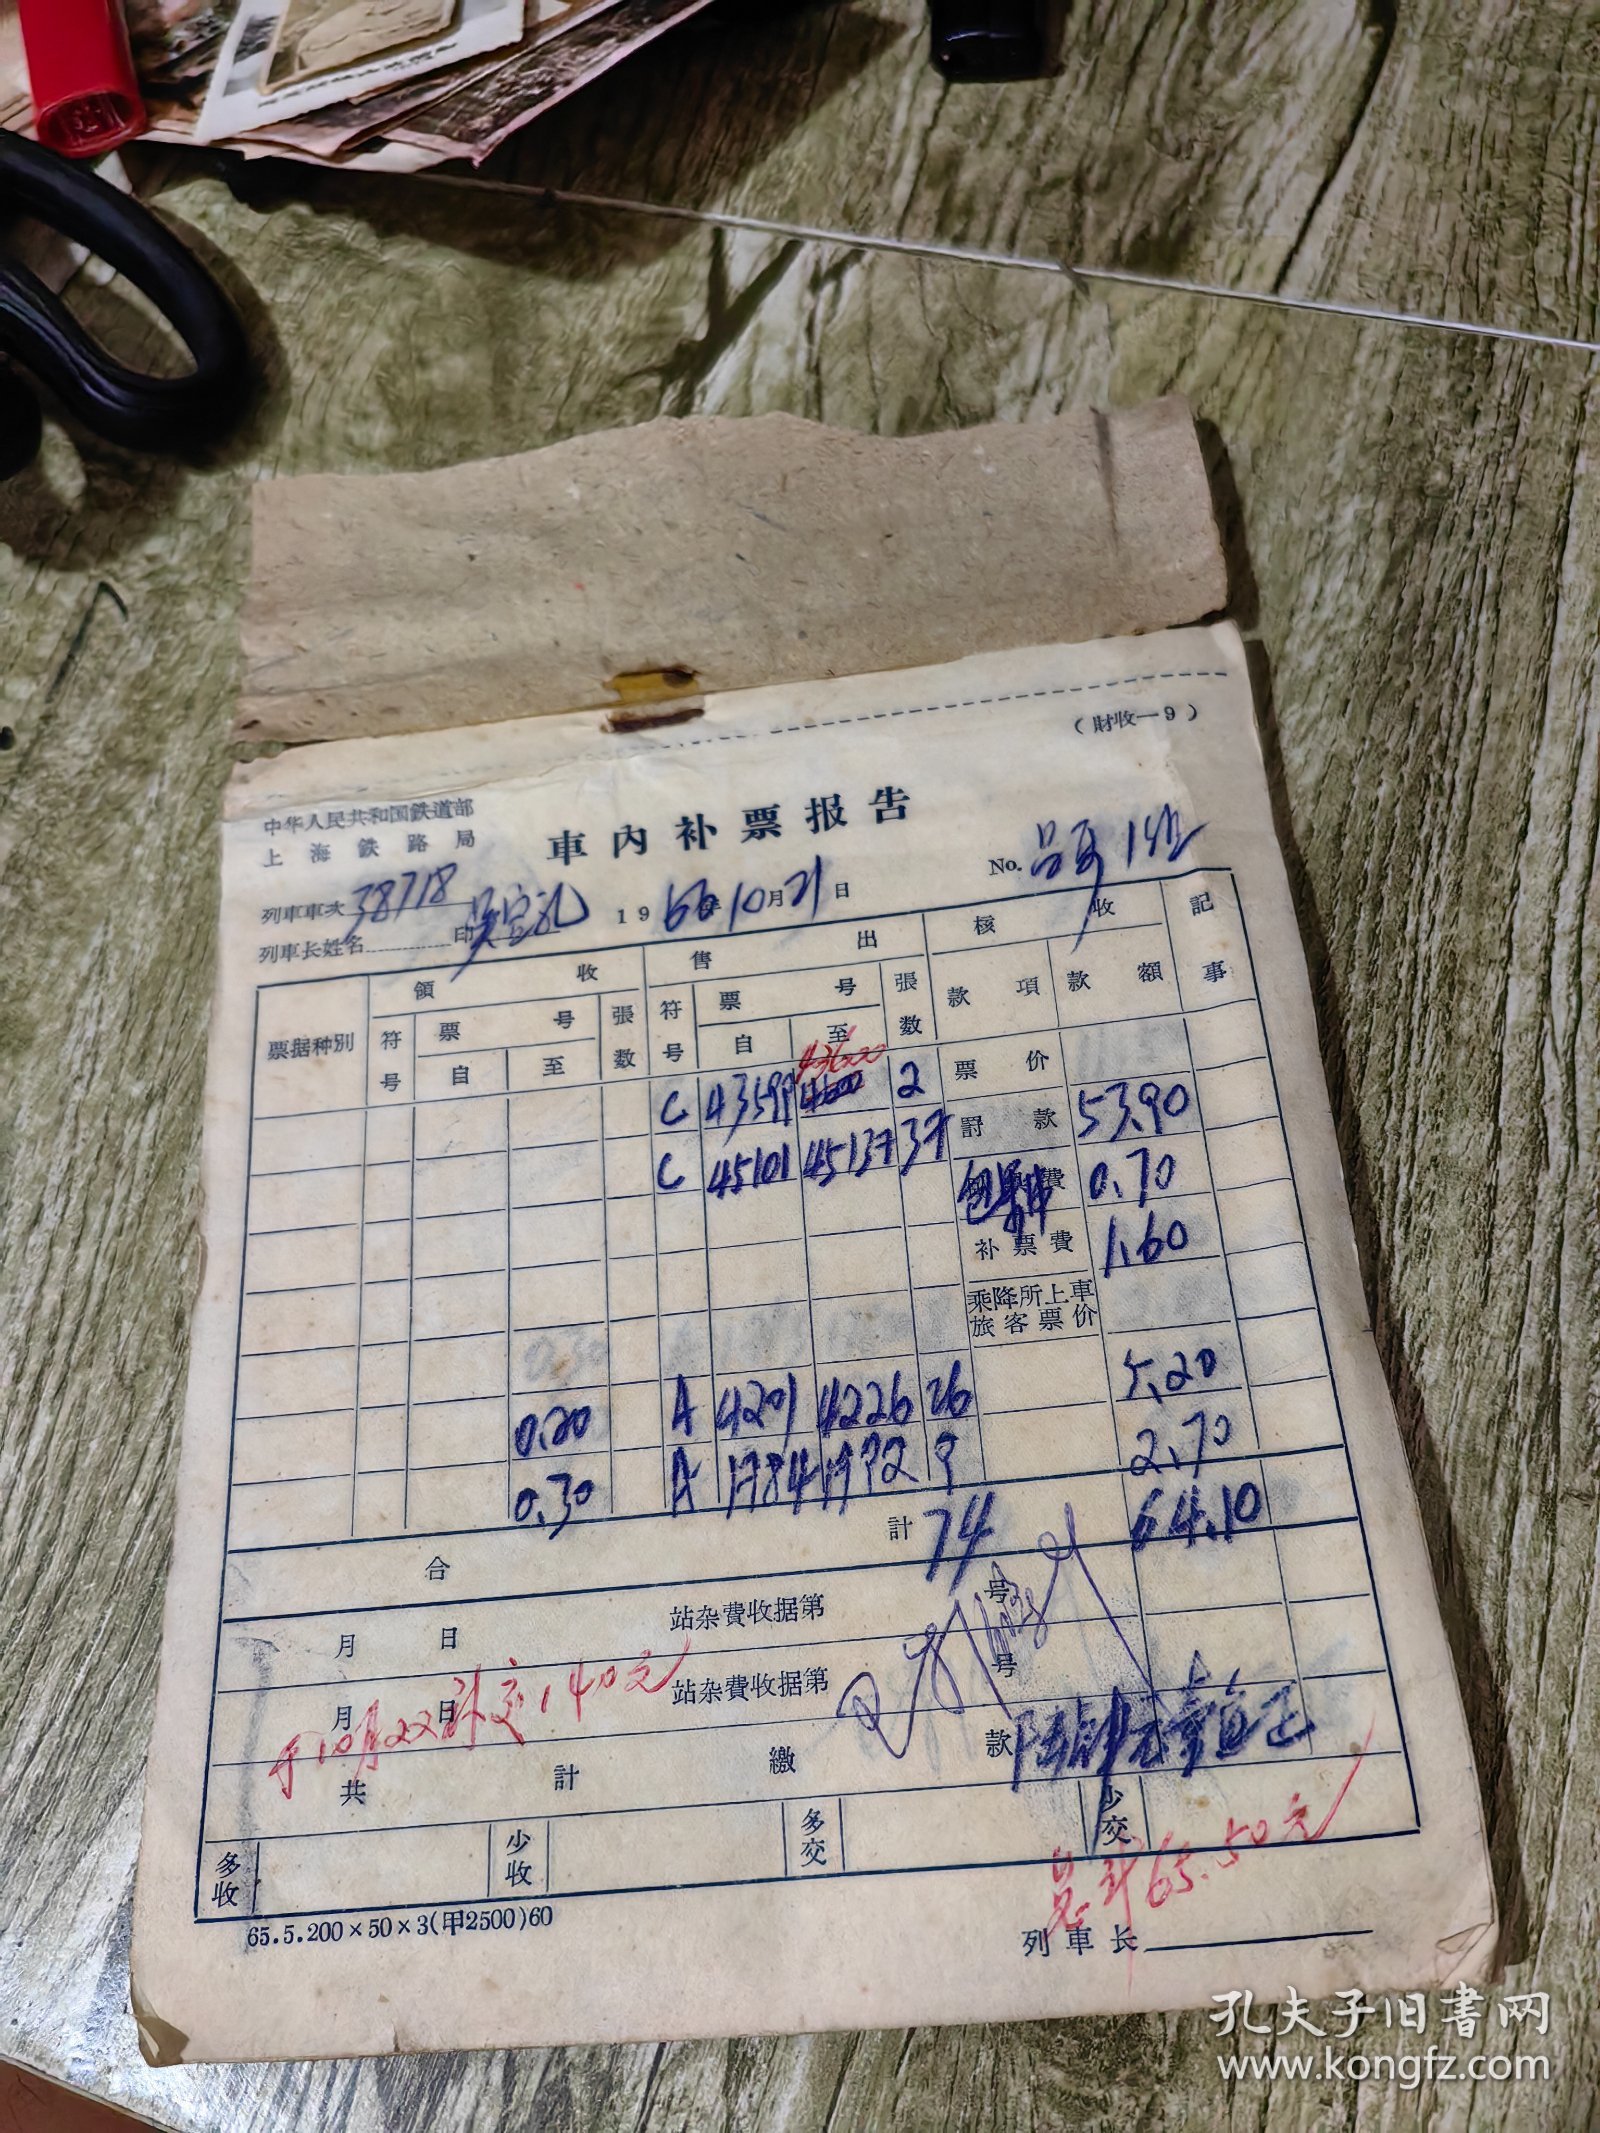 (財收—9)
中华人民共和国鉄道部
上海鉄路局
車內补票报告
No.
列車車次 38718
列車长姓名 印
1966年10月21日
票据种別 領收 售出 核收 記事
符号 票号 張数 符号 票号 張数 款項 款額
自 至 自 至
43600
C 43599 4600 2 票价
C 45101 45137 37 罰款 53.90
費 0.70
补票費 1.60
乘降所上車
旅客票价
0.20 A 4201 4226 26 5.20
0.30 A 1784 1792 9 2.70
合計 74 64.10
月 日 站杂費收据第 号
月 日 站杂費收据第 号
于10月22日补交1.40元
共計繳款
多收 少收 多交 少交
总计65.50元
65.5.200×50×3(甲2500)60
列車长
孔夫子旧書网
www.kongfz.com